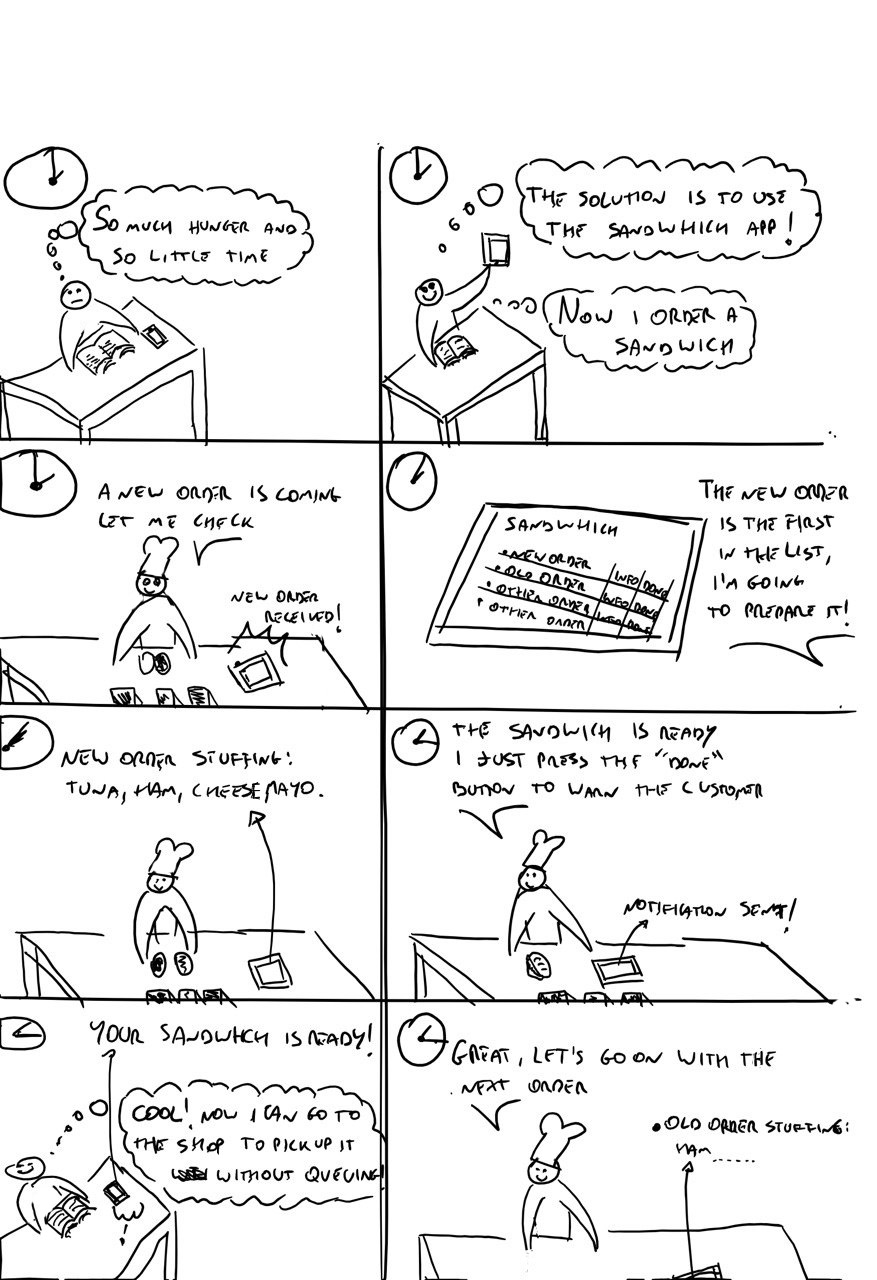 SO MUCH HUNGER AND
SO LITTLE TIME
THE SOLUTION IS TO USE
THE SANDWHICH APP!
NOW I ORDER A
SANDWICH
A NEW ORDER IS COMING
LET ME CHECK
NEW ORDER
RECEIVED!
SANDWHICH
• NEW ORDER INFO DONE
• OLD ORDER INFO DONE
• OTHER ORDER INFO DONE
• OTHER ORDER
THE NEW ORDER
IS THE FIRST
IN THE LIST,
I'M GOING
TO PREPARE IT!
NEW ORDER STUFFING:
TUNA, HAM, CHEESE, MAYO.
THE SANDWICH IS READY
I JUST PRESS THE "DONE"
BUTTON TO WARN THE CUSTOMER
NOTIFICATION SENT!
YOUR SANDWHCH IS READY!
COOL! NOW I CAN GO TO
THE SHOP TO PICK UP IT
WITHOUT QUEUING!
GREAT, LET'S GO ON WITH THE
NEXT ORDER
• OLD ORDER STUFFING:
HAM ......